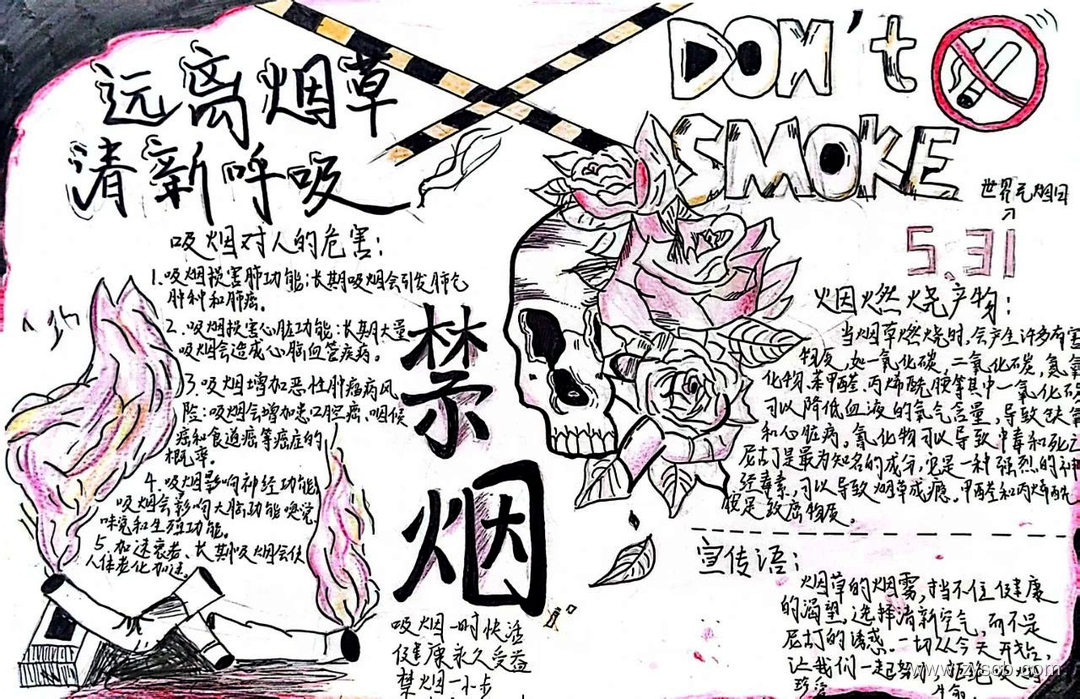 远离烟草
清新呼吸
DON't
SMOKE
世界无烟日
5.31
吸烟对人的危害:
1.吸烟损害肺功能:长期吸烟会引发肺气
肿和肺癌。
2.吸烟损害心脏功能:长期大量
吸烟会造成心脑血管疾病。
3.吸烟增加恶性肿瘤病风
险:吸烟会增加患口腔癌、咽候
癌和食道癌等癌症的
概率。
4.吸烟影响神经功能
吸烟会影响大脑功能嗅觉
味觉和生殖功能。
5.加速衰老、长期吸烟会使
人体老化加速。
禁
烟
吸烟一时快活
健康永久受益
禁烟一小步
烟燃烧产物:
当烟草燃烧时,会产生许多有害
物质,如一氧化碳,二氧化碳,氮氧
化物、苯甲醛、丙烯酰胺等其中一氧化碳
可以降低血液的氧气含量,导致缺氧
和心脏病,氰化物可以导致中毒和死亡
尼古丁是最为知名的成分,它是一种强烈的神
经毒素,可以导致烟草成瘾,甲醛和丙烯酰
胺是致癌物质。
宣传语:
烟草的烟雾,挡不住健康
的渴望,选择清新空气,而不是
尼古丁的诱惑。一切从今天开始,
让我们一起努力
珍惜生命
www.zysob.com